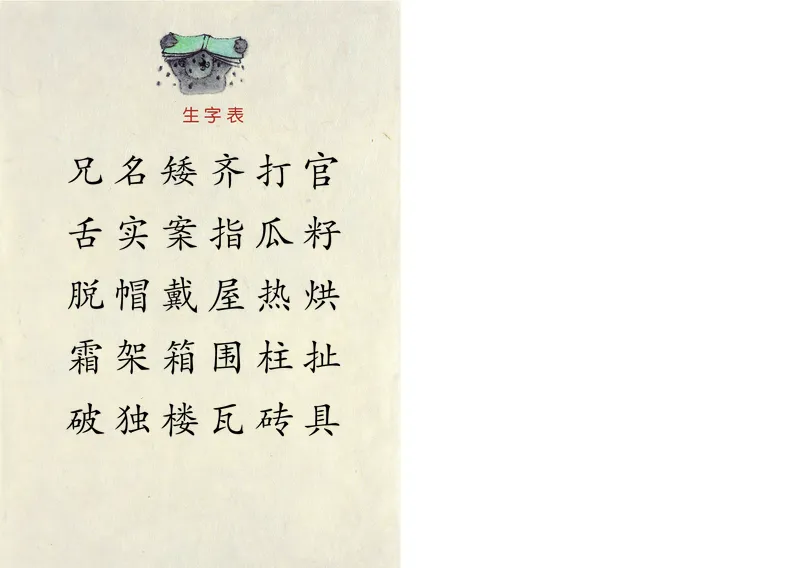 生字表
兄名矮齐打官
舌实案指瓜籽
脱帽戴屋热烘
霜架箱围柱扯
破独楼瓦砖具